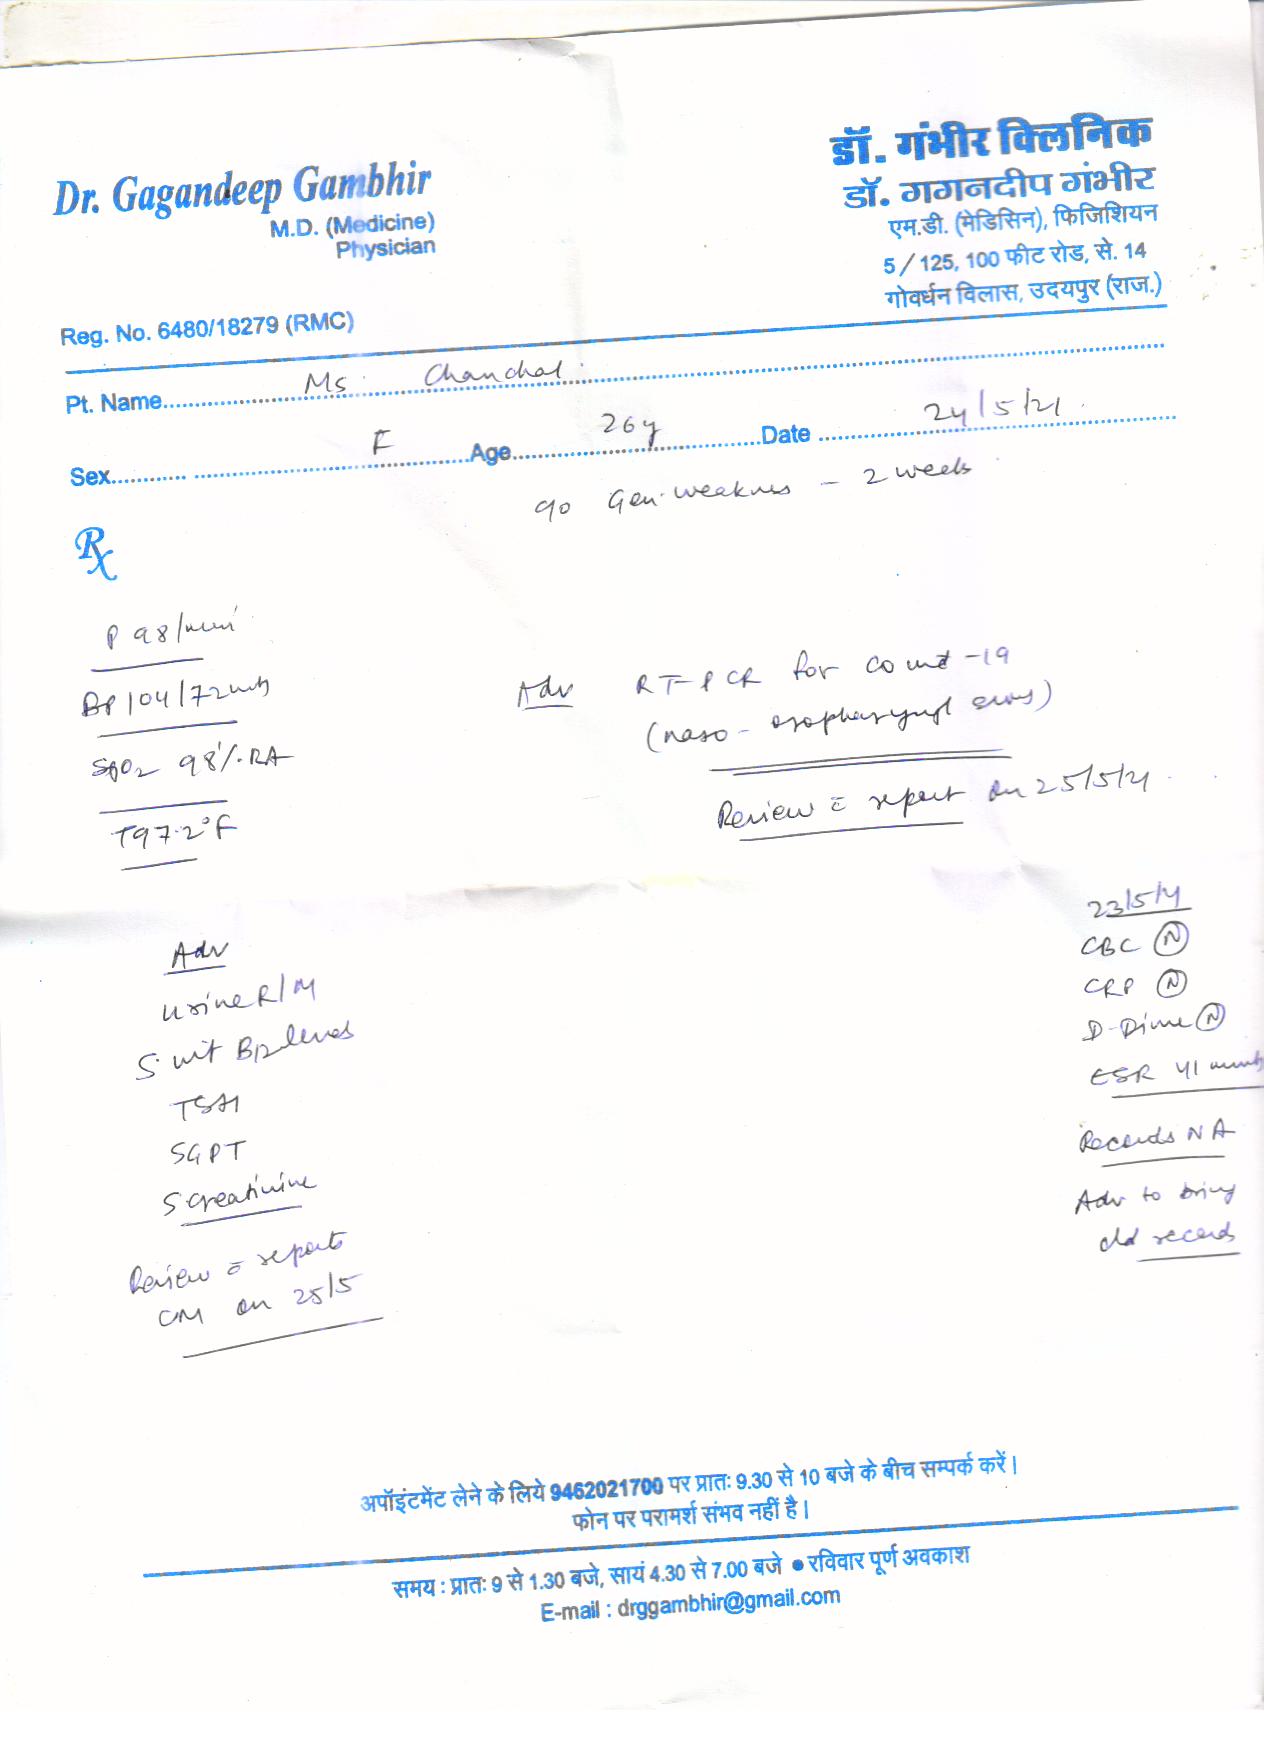 Dr. Gagandeep Gambhir
M.D. (Medicine)
Physician
Reg. No. 6480/18279 (RMC)
डॉ. गंभीर क्लिनिक
डॉ. गगनदीप गंभीर
एम.डी. (मेडिसिन), फिजिशियन
5/125, 100 फीट रोड, से. 14
गोवर्धन विलास, उदयपुर (राज.)
Pt. Name Ms. Chanchal
Sex F Age 26y Date 24/5/21
c/o Gen. weakness - 2 weeks
Rx
P 98/min
BP 104/72
SpO2 98% RA
T 97.2°F
Adv RT-PCR for Covid-19
(naso-oropharyngl swas)
Review c̄ report on 25/5/21
Adv
Urine R/M
S. vit B12 levels
TSH
SGPT
S creatinine
Review c̄ reports
CM on 25/5
23/5/21
CBC (N)
CRP (N)
D-Dime (N)
ESR 41
Records NA
Adv to bring
old records
अपॉइंटमेंट लेने के लिये 9462021700 पर प्रातः 9.30 से 10 बजे के बीच सम्पर्क करें।
फोन पर परामर्श संभव नहीं है।
समय : प्रातः 9 से 1.30 बजे, सायं 4.30 से 7.00 बजे ● रविवार पूर्ण अवकाश
E-mail : drggambhir@gmail.com